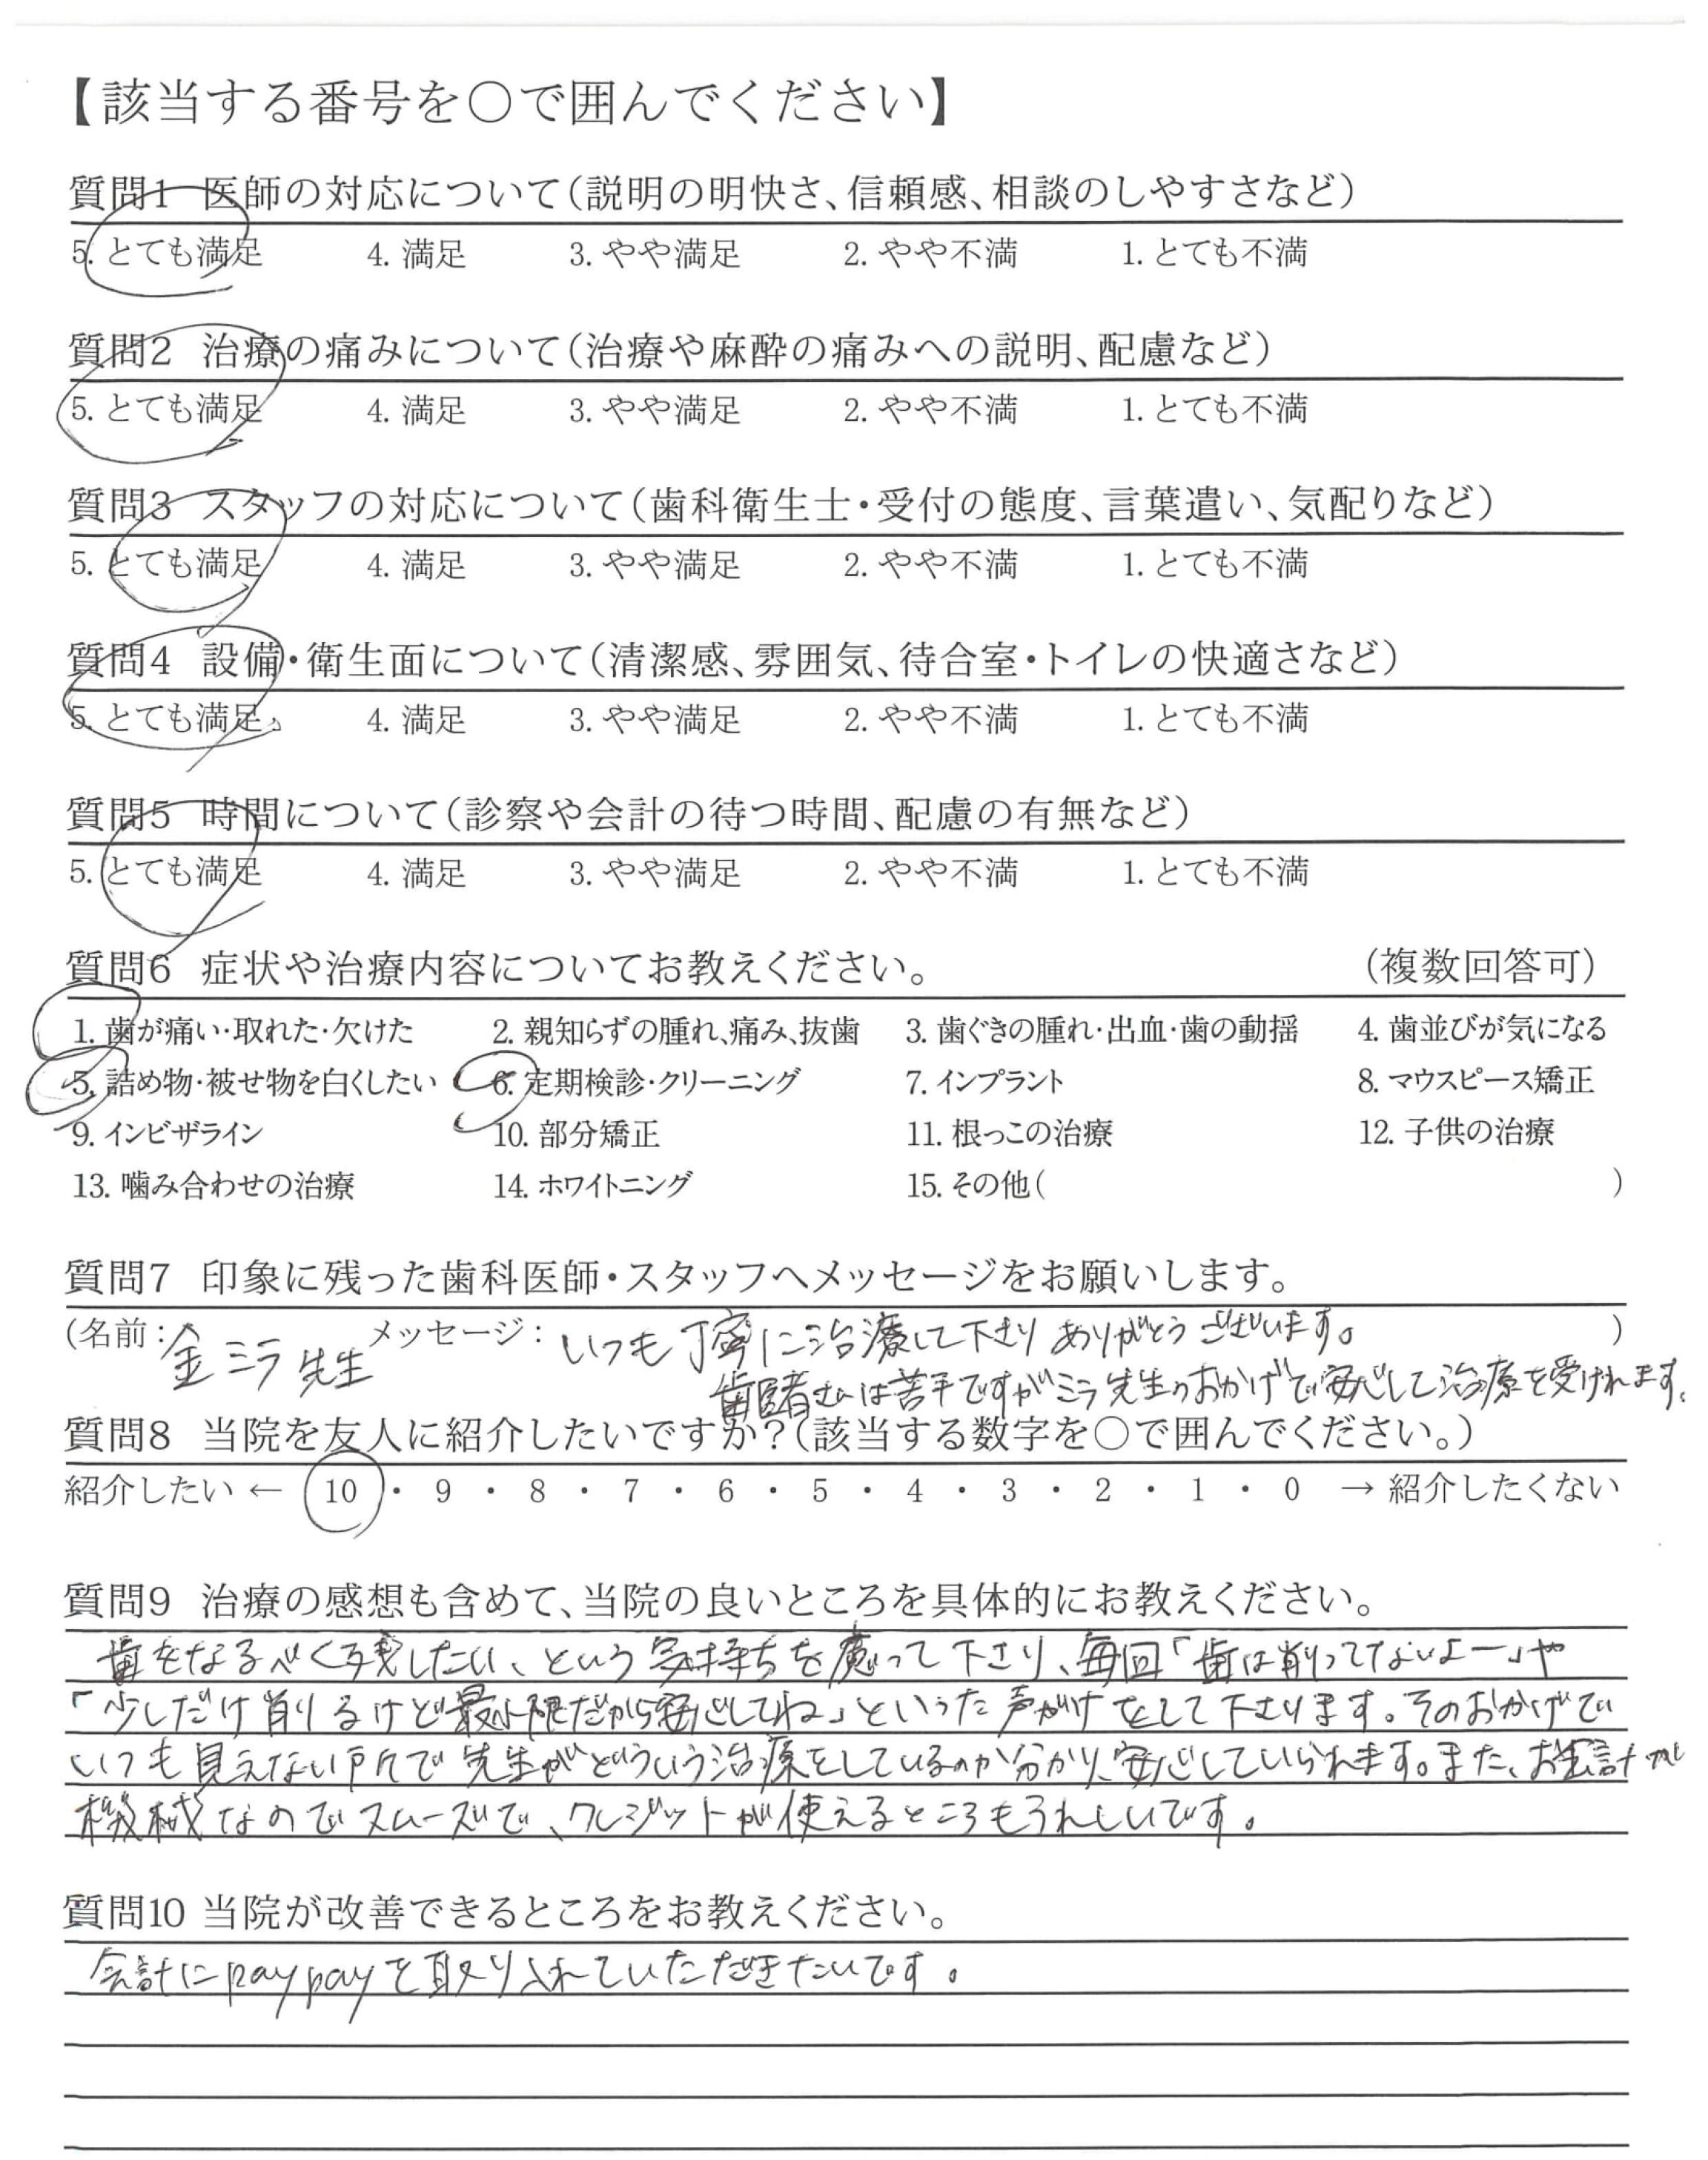 【該当する番号を○で囲んでください】
質問1 医師の対応について(説明の明快さ、信頼感、相談のしやすさなど)
5. とても満足 4. 満足 3. やや満足 2. やや不満 1. とても不満
質問2 治療の痛みについて(治療や麻酔の痛みへの説明、配慮など)
5. とても満足 4. 満足 3. やや満足 2. やや不満 1. とても不満
質問3 スタッフの対応について(歯科衛生士・受付の態度、言葉遣い、気配りなど)
5. とても満足 4. 満足 3. やや満足 2. やや不満 1. とても不満
質問4 設備・衛生面について(清潔感、雰囲気、待合室・トイレの快適さなど)
5. とても満足 4. 満足 3. やや満足 2. やや不満 1. とても不満
質問5 時間について(診察や会計の待つ時間、配慮の有無など)
5. とても満足 4. 満足 3. やや満足 2. やや不満 1. とても不満
質問6 症状や治療内容についてお教えください。 (複数回答可)
1. 歯が痛い・取れた・欠けた 2. 親知らずの腫れ、痛み、抜歯 3. 歯ぐきの腫れ・出血・歯の動揺 4. 歯並びが気になる
5. 詰め物・被せ物を白くしたい 6. 定期検診・クリーニング 7. インプラント 8. マウスピース矯正
9. インビザライン 10. 部分矯正 11. 根っこの治療 12. 子供の治療
13. 噛み合わせの治療 14. ホワイトニング 15. その他( )
質問7 印象に残った歯科医師・スタッフへメッセージをお願いします。
(名前: 金ミラ先生 メッセージ: いつも丁寧に治療して下さりありがとうございます。 )
歯医者さんは苦手ですがミラ先生のおかげで安心して治療を受けれます。
質問8 当院を友人に紹介したいですか?(該当する数字を○で囲んでください。)
紹介したい ← 10 ・ 9 ・ 8 ・ 7 ・ 6 ・ 5 ・ 4 ・ 3 ・ 2 ・ 1 ・ 0 → 紹介したくない
質問9 治療の感想も含めて、当院の良いところを具体的にお教えください。
歯をなるべく残したい、という気持ちを慮って下さり、毎回「歯は削ってないよー」や
「少しだけ削るけど最小限だから安心してね」といった声がけをして下さります。そのおかげで
いつも見えない所で先生がどういう治療をしているのか分かり、安心していられます。また、お会計が
機械なのでスムーズで、クレジットが使えるところもうれしいです。
質問10 当院が改善できるところをお教えください。
会計にpaypayを取り入れていただきたいです。